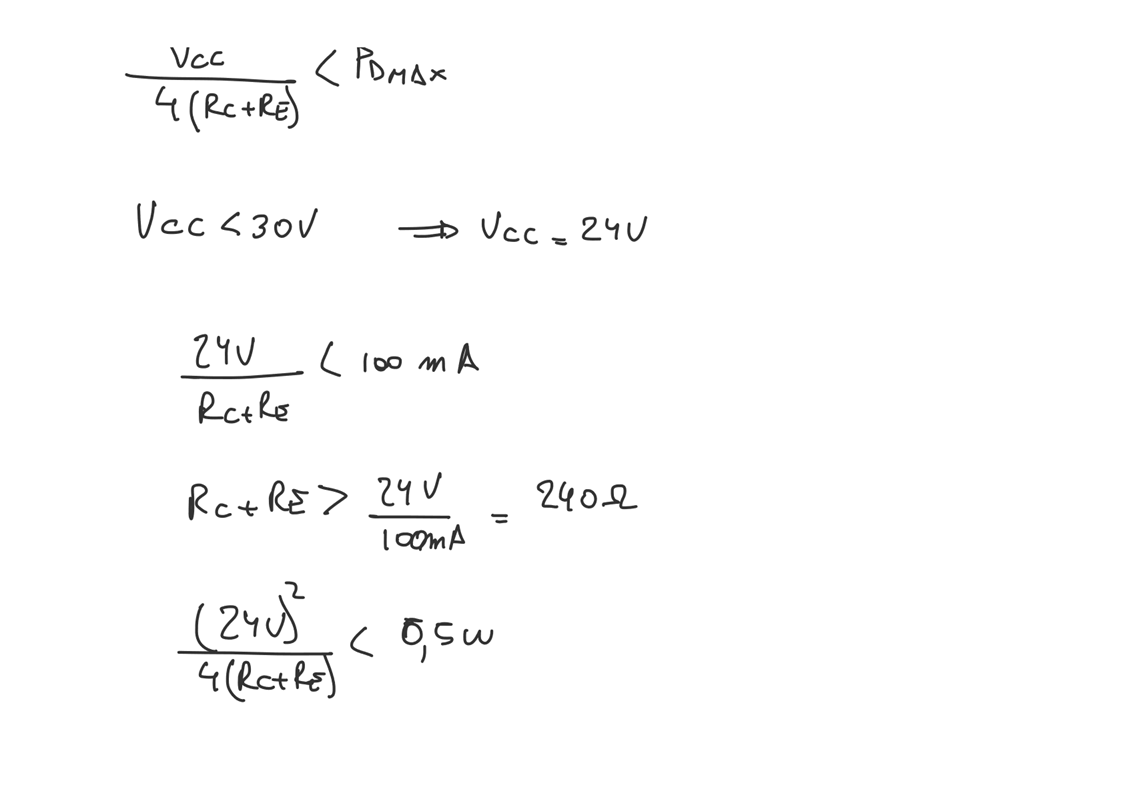 Vcc / 4(Rc+RE) < PDMAX
Vcc < 30V ⟹ Vcc = 24V
24V / Rc+RE < 100 mA
Rc+RE > 24V / 100mA = 240Ω
(24V)² / 4(Rc+RE) < 0,5W